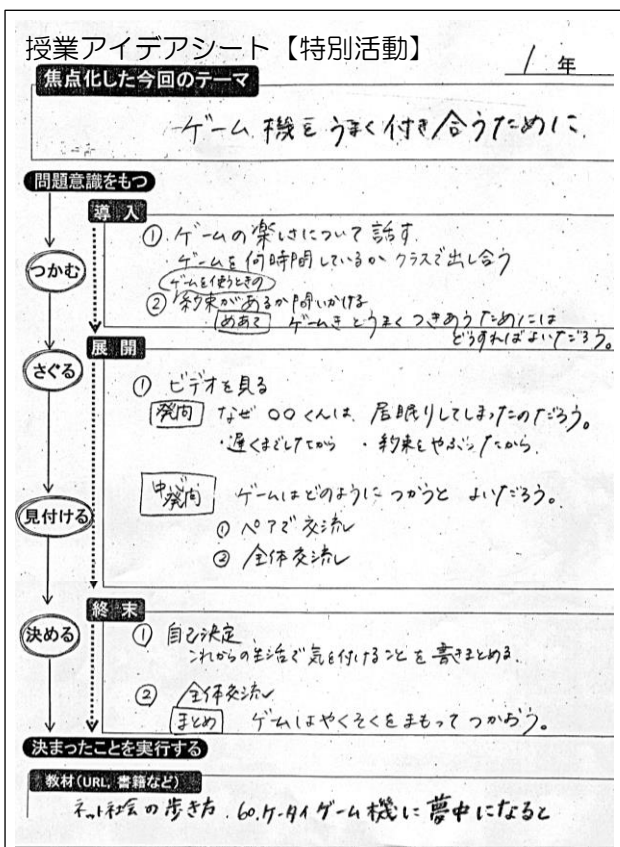 授業アイデアシート【特別活動】
1年
焦点化した今回のテーマ
ゲーム機とうまく付き合うために
問題意識をもつ
導入
① ゲームの楽しさについて話す
ゲームを何時間しているか クラスで出し合う
つかむ
ゲームを使うときの
② 約束があるか問いかける
めあて ゲームきとうまくつきあうためには
どうすればよいだろう。
展開
さぐる
① ビデオを見る
発問 なぜ○○くんは、居眠りしてしまったのだろう。
・遅くまでしてたから ・約束をやぶったから
中発問 ゲームはどのようにつかうと よいだろう。
見付ける
① ペアで交流
② 全体交流
終末
決める
① 自己決定
これからの生活で気を付けることを書きまとめる
② 全体交流
まとめ ゲームはやくそくをまもってつかおう。
決まったことを実行する
教材(URL, 書籍など)
ネット社会の歩き方. 60.ケータイゲーム機に夢中になると